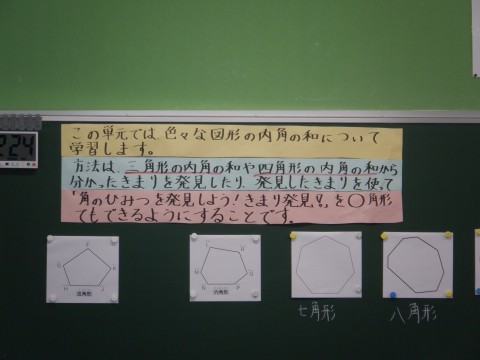 この単元では、色々な図形の内角の和について
学習します。
方法は、三角形の内角の和や四角形の内角の和から
分かったきまりを発見したり、発見したきまりを使って
「角のひみつを発見しよう!きまり発見!!」を○角形
でもできるようにすることです。
五角形
六角形
七角形
八角形